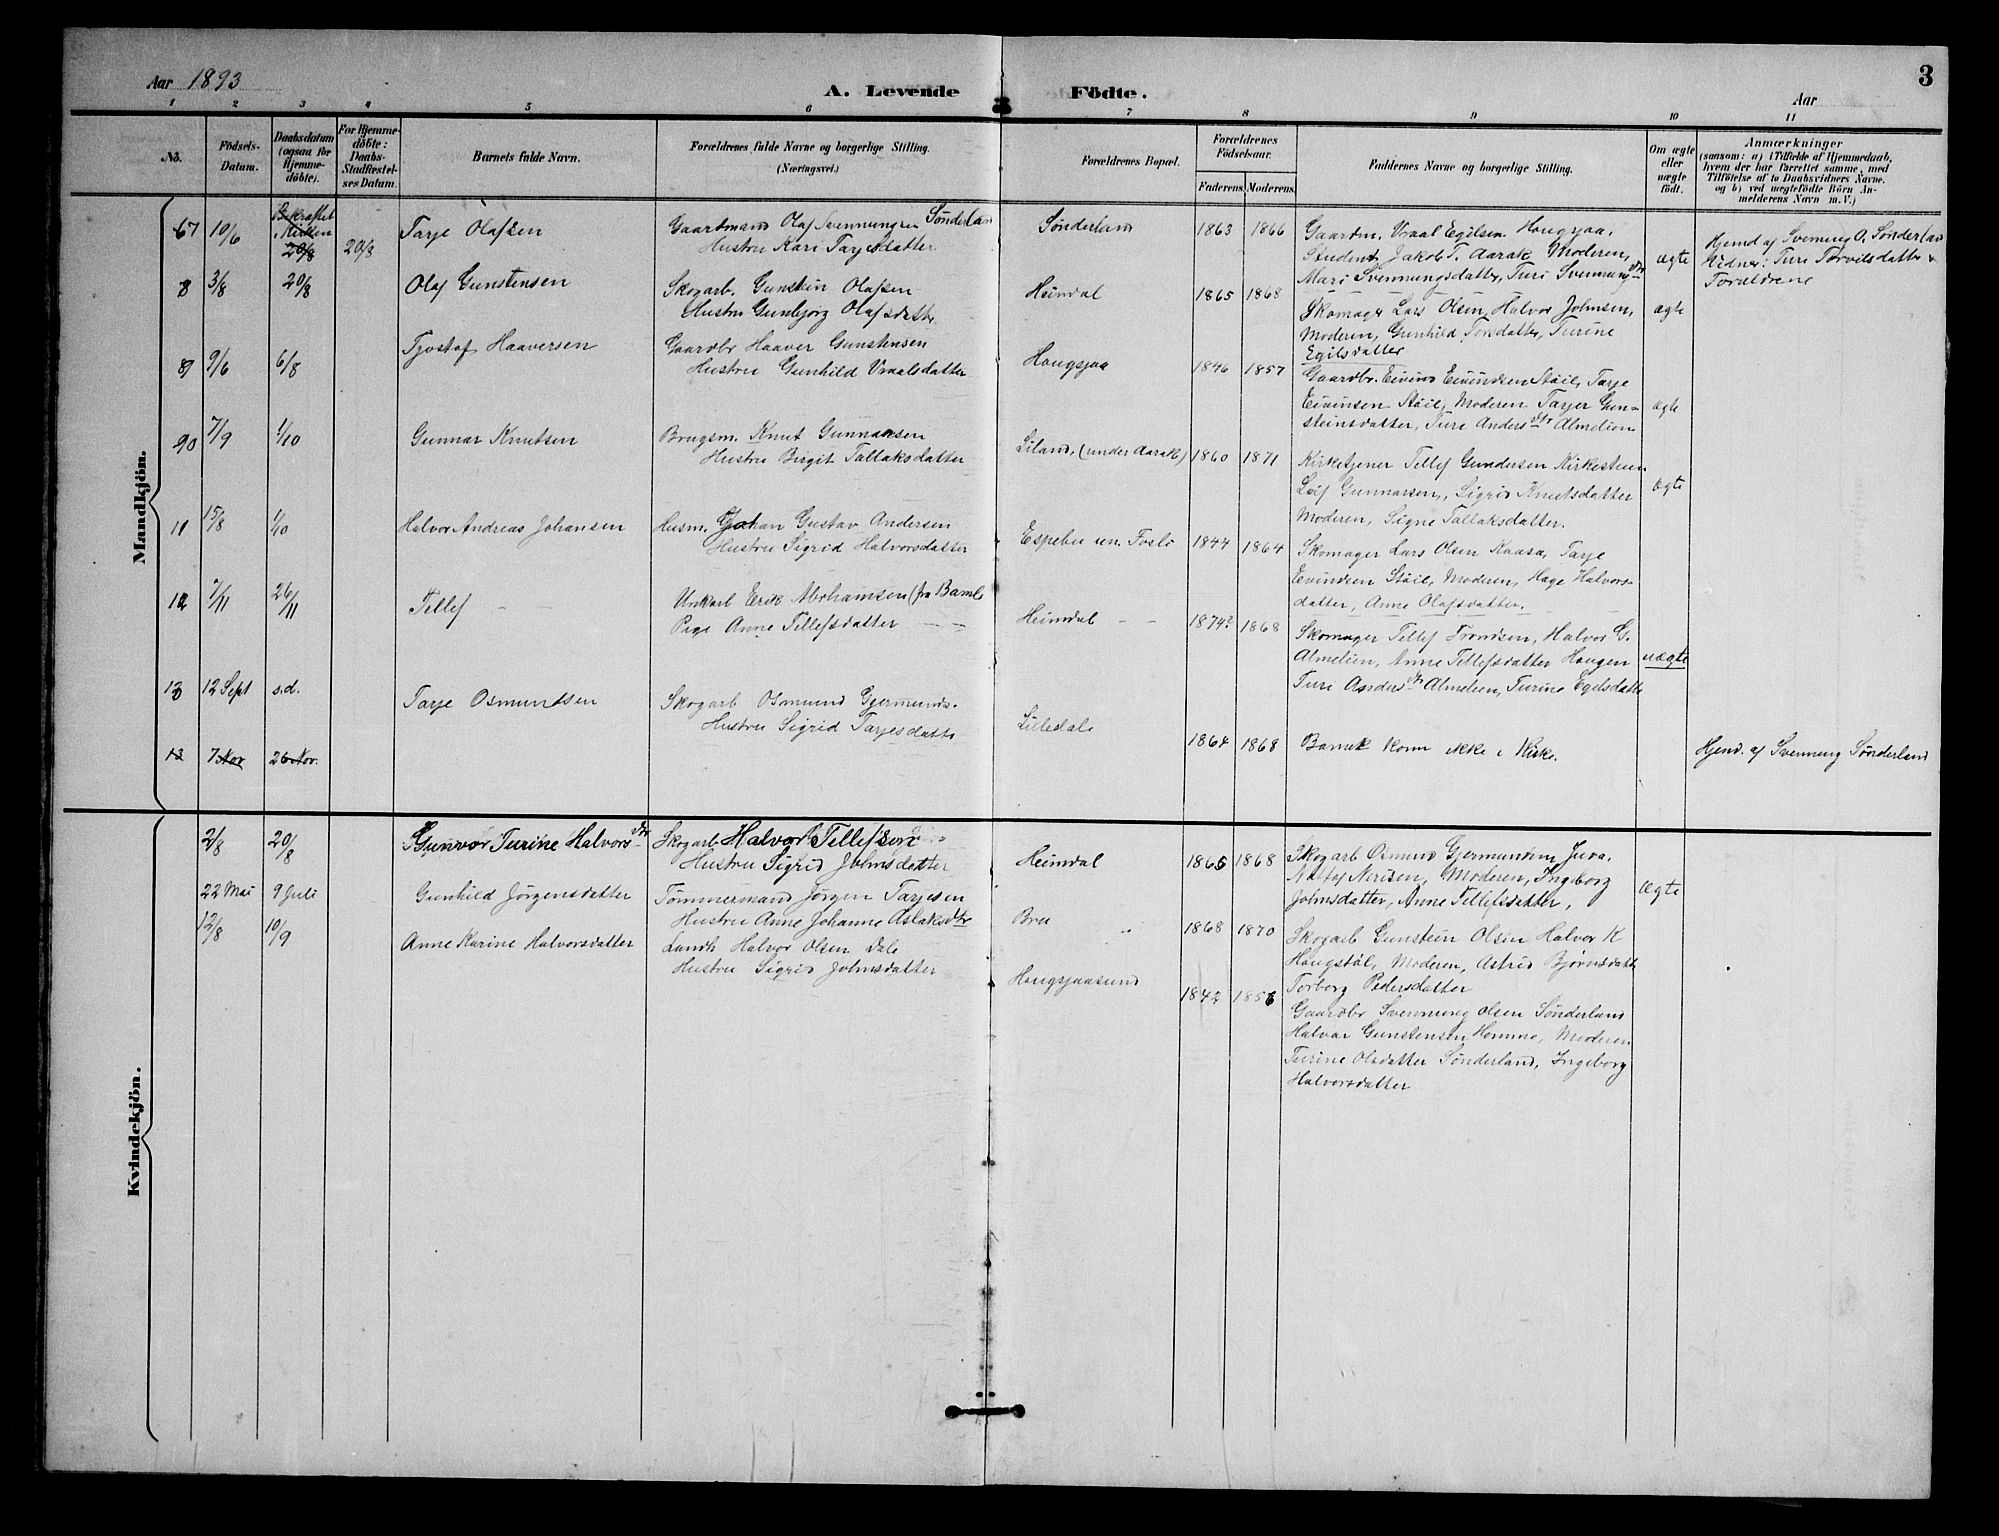 Aar 1893
A. Levende Födte.
Aar
3
1 2 3 4 5 6 7 8 9 10 11
No.
Födsels-Datum.
Daabsdatum (ogsaa for Hjemme-döbte).
For Hjemme-döbte: Daabs-Stadfæstel-ses Datum.
Barnets fulde Navn.
Forældrenes fulde Navne og borgerlige Stilling.
(Næringsvei.)
Forældrenes Bopæl.
Forældrenes Födselsaar.
Faderens. Moderens.
Faddernes Navne og borgerlige Stilling.
Om ægte eller uægte födt.
Anmærkninger
(saasom: a) i Tilfælde af Hjemmedaab, hvem der har forrettet samme, med Tilföielse af to Daabsvidners Navne. og b) ved uægtefödte Börn Anmelderens Navn m. V.)
Mandkjön.
67 10/6 20/8 20/8 Tarje Olafsen
Gaardmand Olaf Svenningsen Sønderland
Hustru Kari Tarjesdatter
Sønderland 1863 1866
Gaardm. Vraal Egilsen Hougsjaa,
Student Jakob T. Aarak, Moderen,
Mari Svenningsdatter, Turi Svennungsdtr
ægte
Hjemd af Svenning O. Sønderland
Vidner: Turi Torvilsdatter &
Foraldrene
8 3/8 20/8 Olaf Gunstensen
Skogarb. Gunstein Olafsen
Hustru Gunbjorg Olafsdatter
Heimdal 1865 1868
Skomager Lars Olsen, Halvor Johnsen,
Moderen, Gunhild Torsdatter, Turine
Egilsdatter
ægte
9 9/6 6/8 Tjostof Haaversen
Gaardbr Haaver Gunstensen
Hustru Gunhild Vraalsdatter
Hougsjaa 1846 1857
Gaardbr. Eivind Eivindsen Stöil, Tarje
Eivinsen Stöil, Moderen Tarjer Gun-
steinsdatter, Turi Andersdtr Almelien
ægte
10 7/9 1/10 Gunnar Knutsen
Brugsm. Knut Gunnarsen
Hustru Birgit Tallaksdatter
Liland, (under Aarak) 1860 1871
Kirketjener Tellef Gundersen Kirkesteen
Leif Gunnarsen, Sigrid Knutsdatter
Moderen, Signe Tallaksdatter.
ægte
11 15/8 1/10 Halvor Andreas Johansen
Husm. Johan Gustav Andersen
Hustru Sigrid Halvorsdatter
Espebu un. Fosli 1844 1864
Skomager Lars Olsen Kaasa, Tarje
Eivindsen Stöil, Moderen, Hæge Halvors-
datter, Anne Olafsdatter.
12 7/11 26/11 Tellef
Unkarl Erik Abrhamsen (fra Bamle
Pige Anne Tellefsdatter
Heimdal 1874? 1868
Skomager Tellef Trondsen, Halvor G.
Almelien, Anne Tellefsdatter Haugen
Turi Andersdtr Almelien, Turine Egilsdatter
uægte
13 12 Sept s.d. Tarje Osmundsen
Skogarb Osmund Gjermunds.
Hustru Sigrid Tarjesdatter
Lilledal 1864 1868
Barnet kom ikke i Kirke.
Hjemd. af Svennung Sønderland
13 7 Nov 26 Nov.
Kvindekjön.
2/8 20/8 Gunvor Turine Halvorsdtr
Skogarb Halvor Tellefsen
Hustru Sigrid Johnsdatter
Heimdal 1865 1868
Skogarb Osmund Gjermundsen Juva,
Moderen, Ingeborg
Johnsdatter, Anne Tellefsdatter,
ægte
22 Mai 9 Juli Gunhild Jørgensdatter
Tømmermand Jørgen Tarjesen
Hustru Anne Johanne Aslaksdtr
Bru 1868 1870
Skogarb Gunstein Olsen Halvor K
Hougstöl, Moderen, Astrid Bjørnsdatter
Torborg Pedersdatter
12/8 10/9 Anne Karine Halvorsdatter
Landh Halvor Olsen Dale
Hustru Sigrid Johnsdatter
Hougsjaasund 1842 1856
Gaardbr Svennung Olsen Sønderland
Halvar Gunstensen Homme, Moderen
Turine Olsdatter Sønderland, Ingeborg
Halvorsdatter